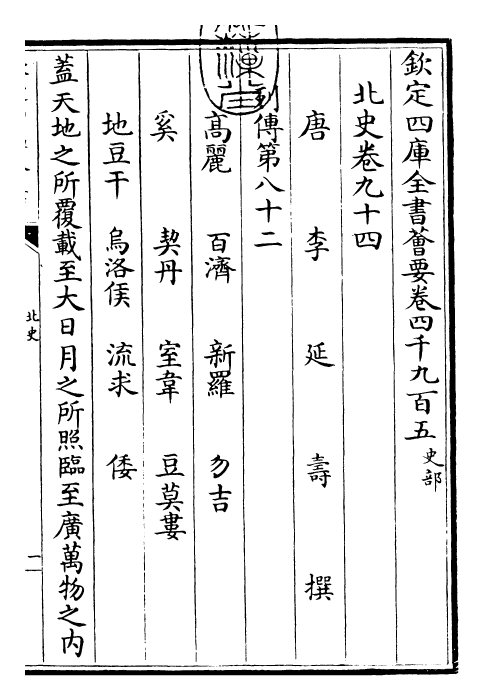 欽定四庫全書薈要卷四千九百五 史部
北史卷九十四
唐 李 延 壽 撰
列傳第八十二
高麗 百濟 新羅 勿吉
奚 契丹 室韋 豆莫婁
地豆干 烏洛侯 流求 倭
蓋天地之所覆載至大日月之所照臨至廣萬物之内
北史
一